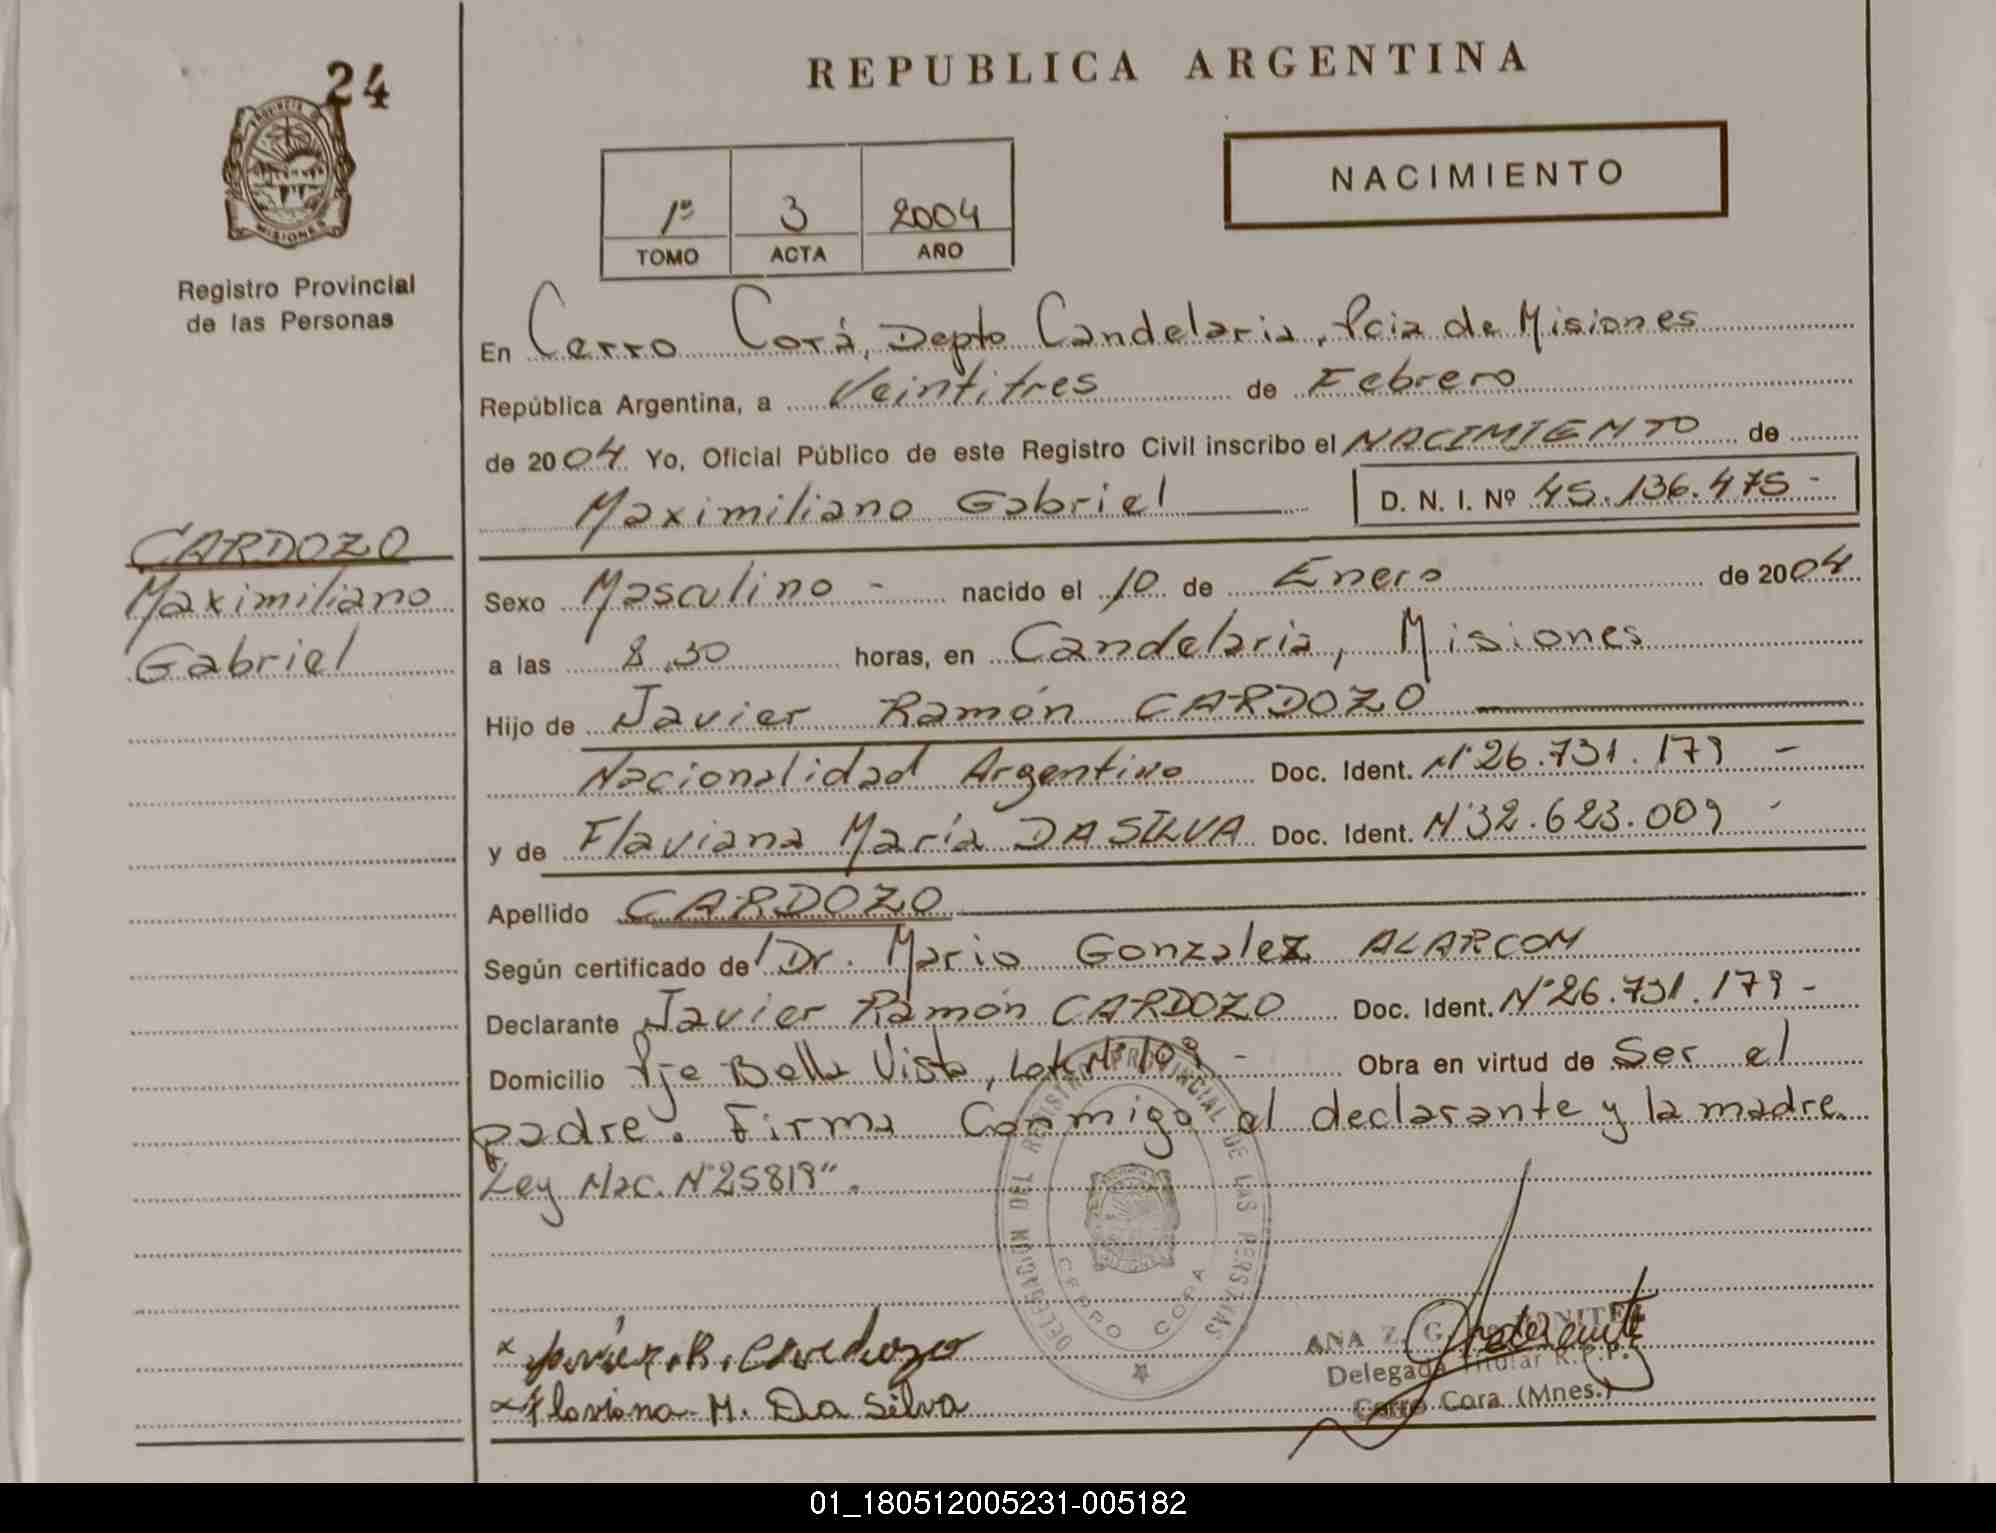 24
REPUBLICA ARGENTINA
PROVINCIA DE
MISIONES
Registro Provincial
de las Personas
NACIMIENTO
1º 3 2004
TOMO ACTA AÑO
En Cerro Corá, Depto Candelaria, Pcia de Misiones
República Argentina, a Veintitres de Febrero
de 2004 Yo, Oficial Público de este Registro Civil inscribo el NACIMIENTO de
Maximiliano Gabriel D. N. I. Nº 45.136.475 -
CARDOZO
Maximiliano
Gabriel
Sexo Masculino - nacido el 10 de Enero de 2004
a las 8,30 horas, en Candelaria, Misiones
Hijo de Javier Ramón CARDOZO
Nacionalidad Argentino Doc. Ident. Nº 26.731.179 -
y de Flaviana María DA SILVA Doc. Ident. Nº 32.623.009 -
Apellido CARDOZO
Según certificado de Dr. Mario Gonzalez ALARCON
Declarante Javier Ramón CARDOZO Doc. Ident. Nº 26.731.179 -
Domicilio Pje Bella Vista, Lote Nº 109 - Obra en virtud de Ser el
padre. Firma Conmigo el declarante y la madre.
Ley Nac. Nº 25819".
DELEGACION DEL REGISTRO PROVINCIAL DE LAS PERSONAS
CERRO CORA
x Javier R. Cardozo
x Flaviana M. Da Silva
ANA Z. G.
Delegada Titular R.P.P.
Cerro Cora (Mnes.)
01_180512005231-005182